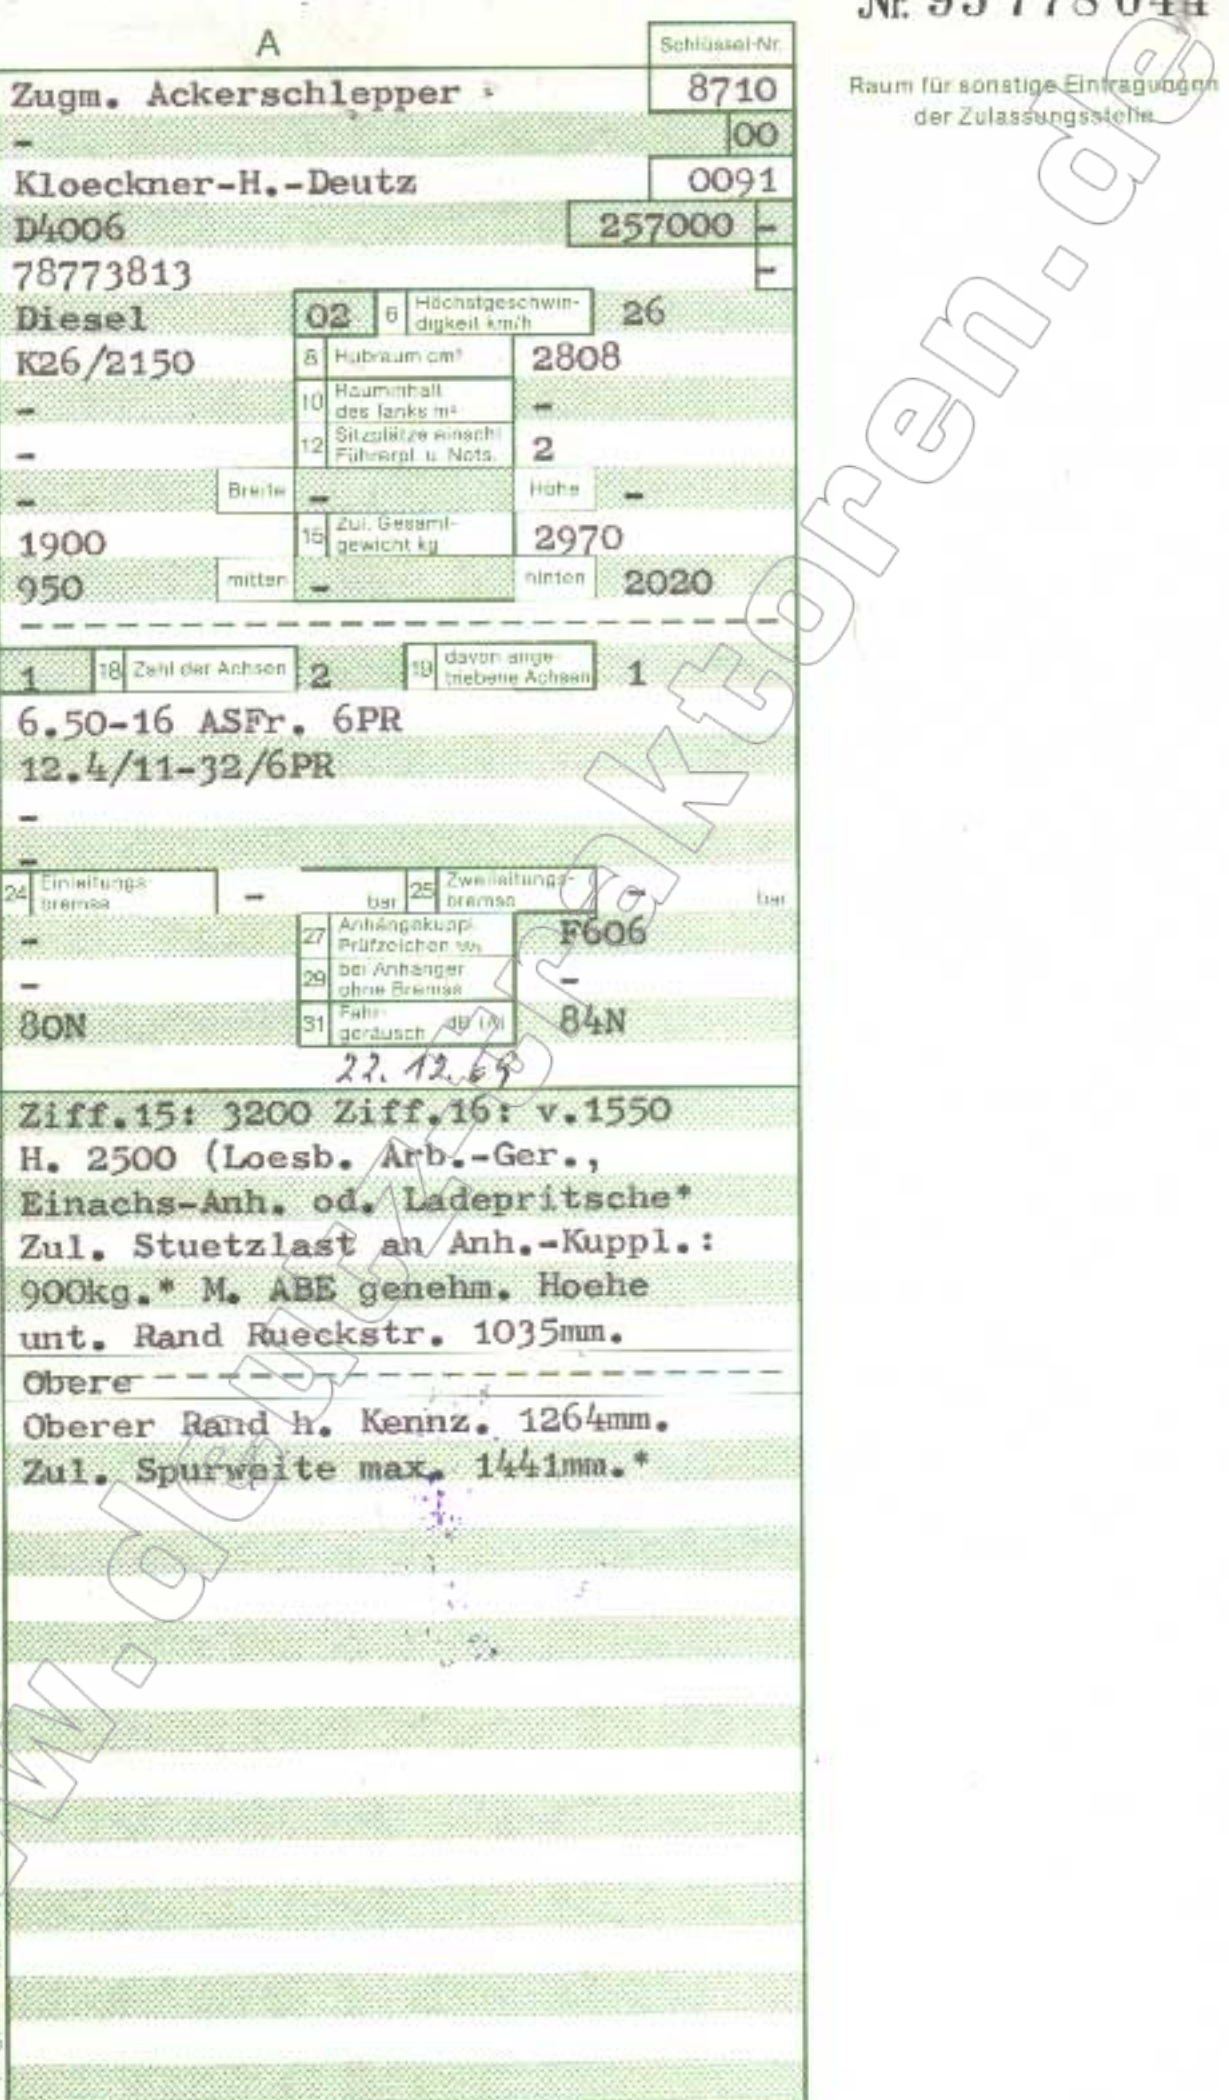 Nr. 95 778 044
A
Schlüssel-Nr.
Raum für sonstige Eintragungen
der Zulassungsstelle
Zugm. Ackerschlepper 8710
- 00
Kloeckner-H.-Deutz 0091
D4006 257000 -
78773813 -
Diesel 02 6 Höchstgeschwin-
digkeit km/h 26
K26/2150 8 Hubraum cm³ 2808
- 10 Rauminhalt
des Tanks m³ -
- 12 Sitzplätze einschl.
Führerpl. u. Nots. 2
- Breite - Höhe -
1900 15 Zul. Gesamt-
gewicht kg 2970
950 mitten - hinten 2020
1 18 Zahl der Achsen 2 19 davon ange-
triebene Achsen 1
6.50-16 ASFr. 6PR
12.4/11-32/6PR
-
-
24 Einleitungs-
bremse - bar 25 Zweileitungs-
bremse - bar
- 27 Anhängekuppl.
Prüfzeichen F606
- 29 bei Anhänger
ohne Bremse -
80N 31 Fahr-
geräusch dB (A) 84N
22.12.69
Ziff.15: 3200 Ziff.16: v.1550
H. 2500 (Loesb. Arb.-Ger.,
Einachs-Anh. od. Ladepritsche*
Zul. Stuetzlast an Anh.-Kuppl.:
900kg.* M. ABE genehm. Hoehe
unt. Rand Rueckstr. 1035mm.
Obere
Oberer Rand h. Kennz. 1264mm.
Zul. Spurweite max. 1441mm.*
w.deutz-traktoren.de